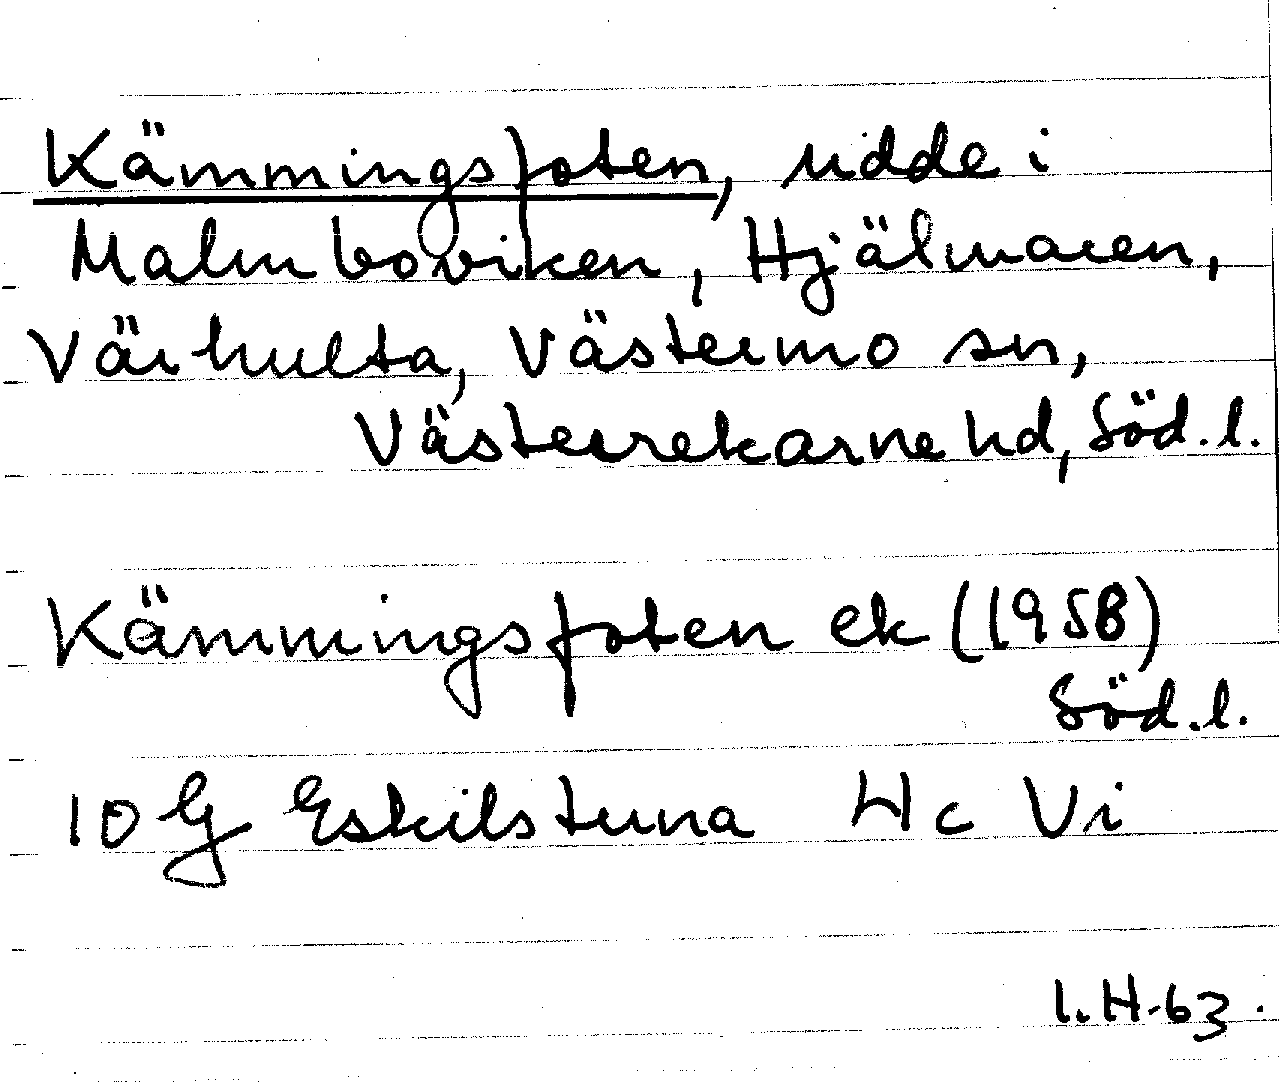 Kämmingsfoten, udde i
Malmboviken, Hjälmaren,
Värhulta, Västermo sn,
Västerrekarne hd, Söd. l.
Kämmingsfoten ek (1958)
Söd. l.
10 G Eskilstuna 4c Vi
I. H-63.